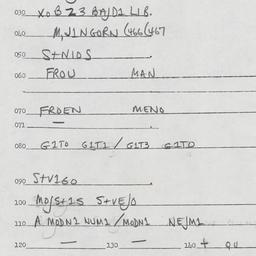 030 X0 B Z3 BAJD1 LIB.
040 M,JINGORN (466(467
050 S+NIDS
060 FROU MAN
070 FRDEN MENO
071 —
080 G2TO G1T1 / G1T3 G2TO
090 S+V160
100 MO/S+1S S+VE/O
110 A MODN2 NUM2 / MODN1 NEJM1
120 — 130 — 140 + QU